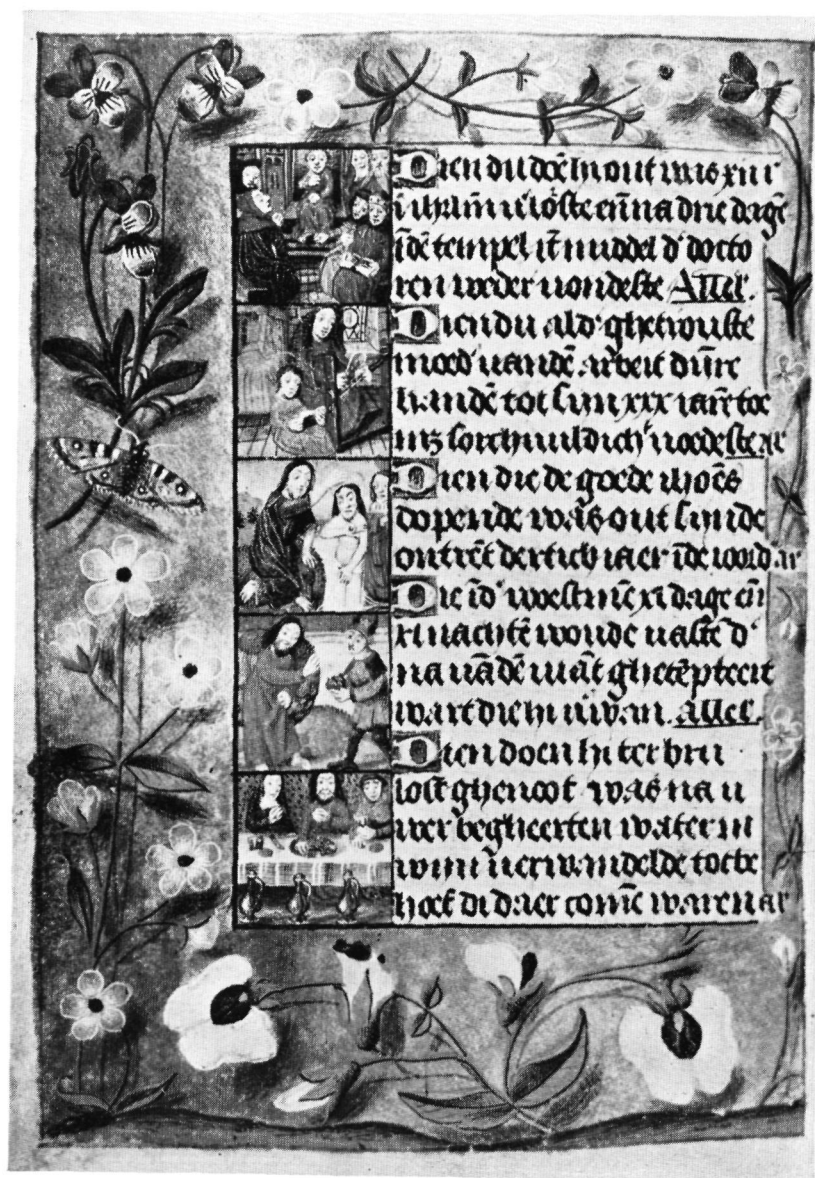 Dien du doē hi out was xii i
i ihrlm̄ v̄loste en̄ na drie dagē
īdē tempel īt middel d' docto
ren weder vondeste Allel.
Dien du als d' ghetrouste
moed' vandē arbeit
handē tot sijn xxx iarē toe
sorchvuldich' voedeste ar
Dien die de goede ihoēs
dopende was out sinde
ontrēt dertich iaer īde ioordā ar
Die īd' woestinē xl dage en̄
xl nachtē woude vastē d'
na vādē viāt ghetēpteert
wart die hi v̄wan. Allel.
Dien doen hi ter bru
loft ghenoot was na u
wer begheerten water in
wijn v̄erwandelde tot be
hoef di daer comē waren ar